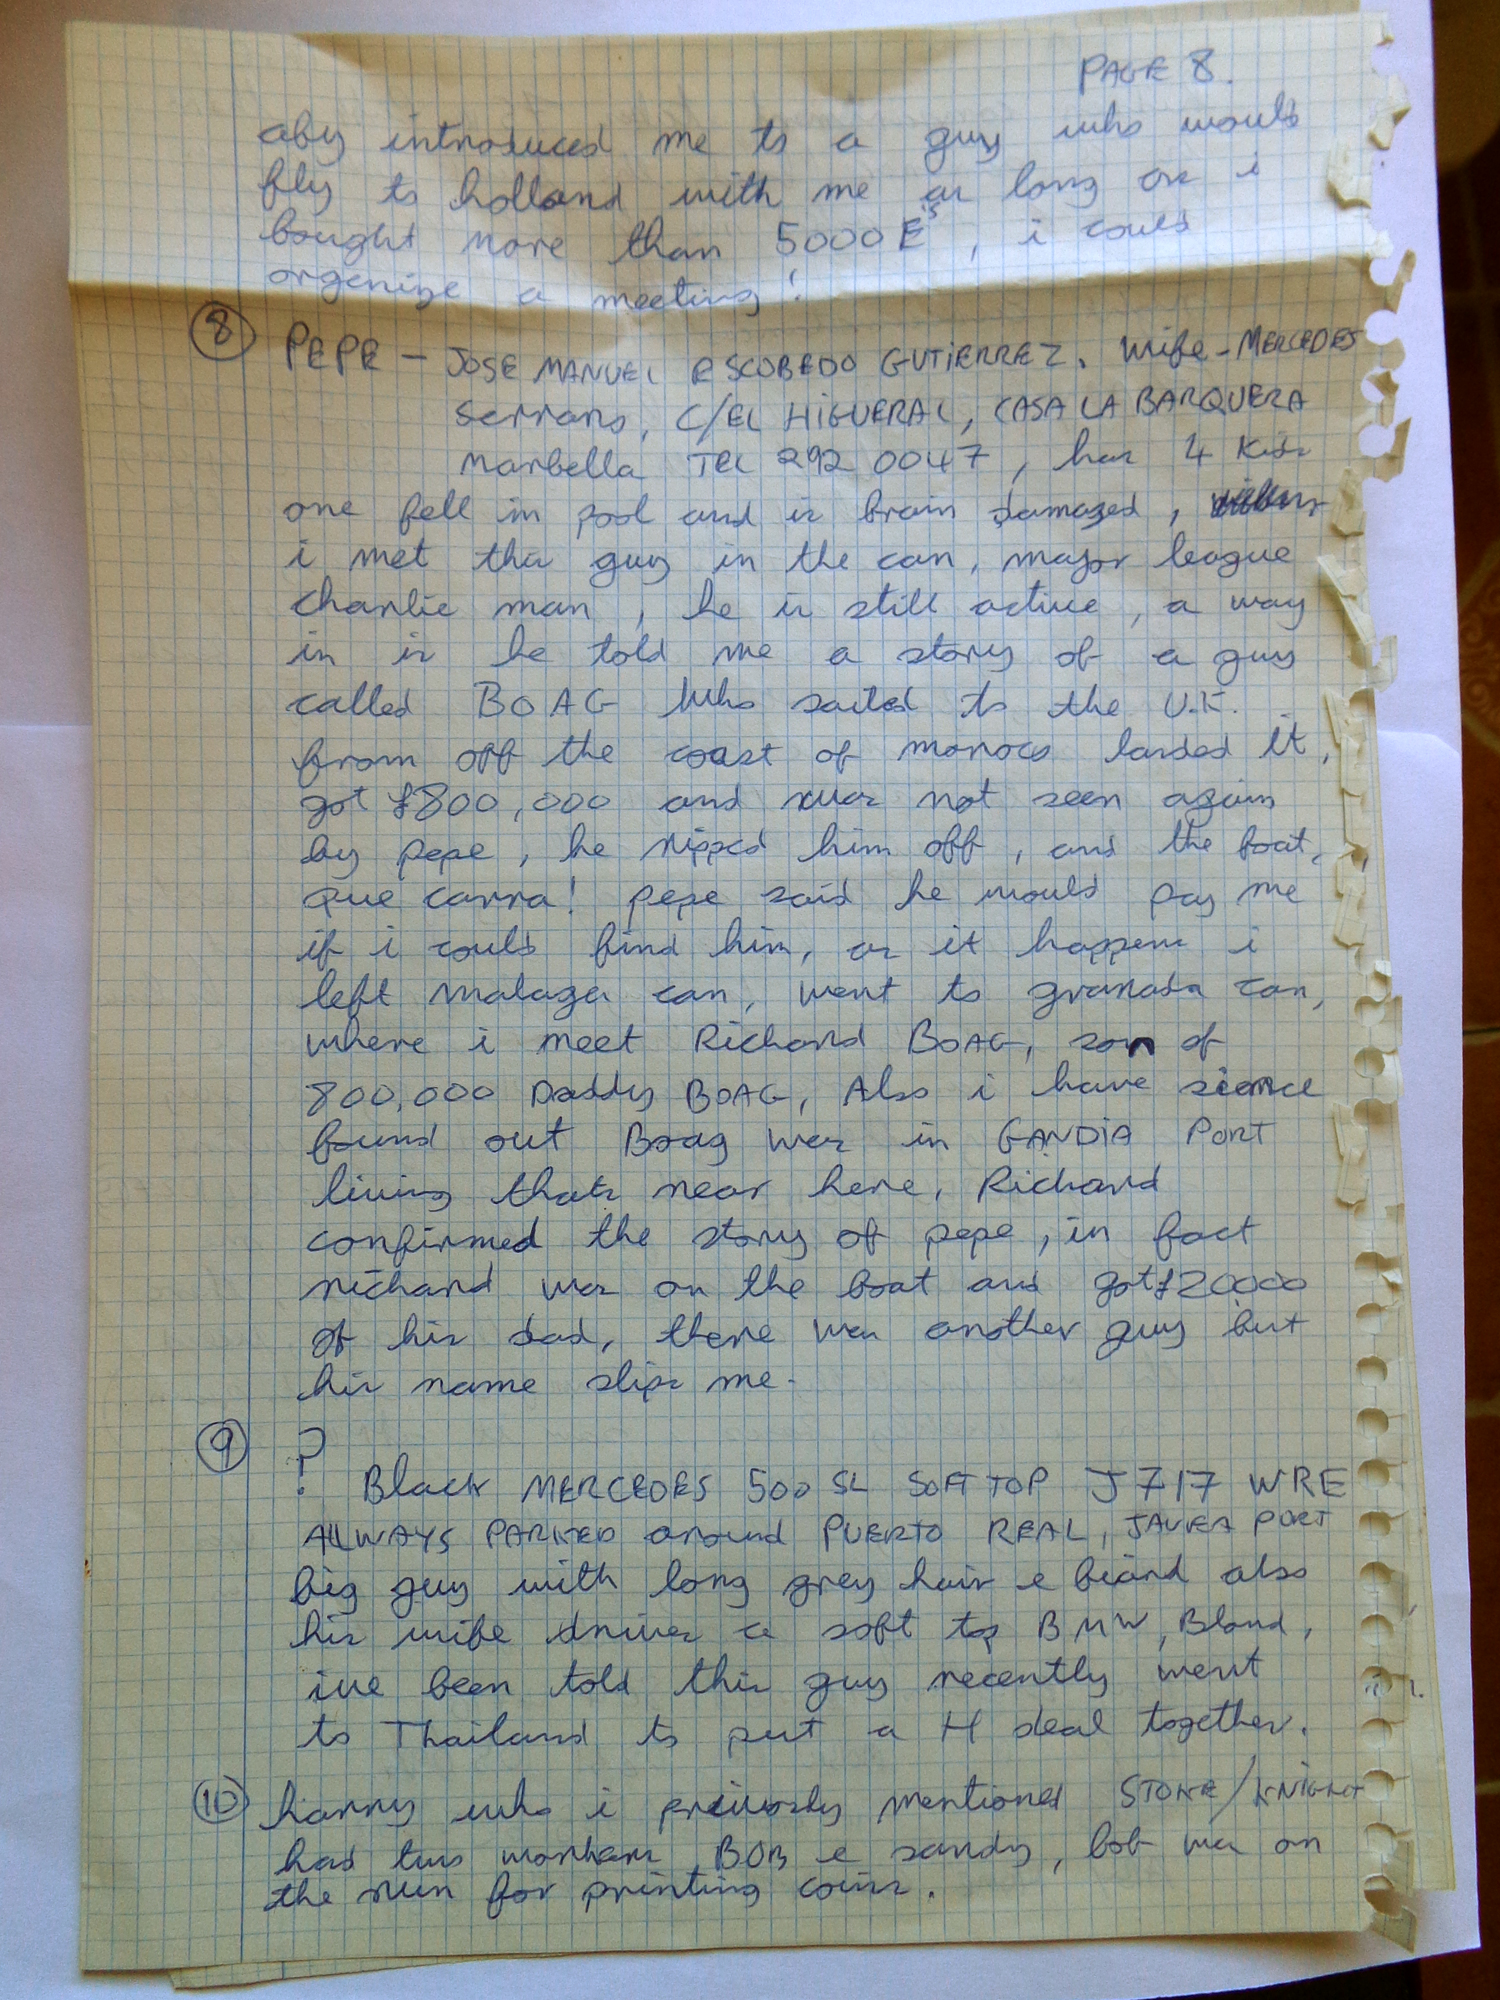 PAGE 8.
aby introduced me to a guy who would
fly to holland with me as long as i
bought more than 5000 E's, i could
organize a meeting!
8 PEPE - JOSE MANUEL ESCOBEDO GUTIERREZ. Wife - MERCEDES
Serrano, C/EL HIGUERAL, CASA LA BARQUERA
Marbella TEL 292 0047, has 4 Kids
one fell in pool and is brain damaged,
i met this guy in the can, major league
charlie man, he is still active, a way
in is he told me a story of a guy
called BOAG who sailed to the U.K.
from off the coast of moroco landed it,
got £800,000 and was not seen again
by pepe, he ripped him off, and the boat,
que carra! pepe said he would pay me
if i could find him, as it happens i
left malaga can, went to granada can,
where i meet Richard BOAG, son of
800,000 Daddy BOAG, Also i have sience
found out Boag was in GANDIA PORT
living thats near here, Richard
confirmed the story of pepe, in fact
richard was on the boat and got £20000
of his dad, there was another guy but
his name slips me.
9 ?
Black MERCEDES 500 SL SOFT TOP J717 WRE
ALLWAYS PARKED around PUERTO REAL, JAVEA PORT
big guy with long grey hair e biard also
his wife drives a soft top BMW, Bland,
ive been told this guy recently went
to Thailand to put a H deal together.
10 harry who i previously mentioned STOKE/KNIGHT
had two workers BOB e sandy, bob was on
the run for printing coins.